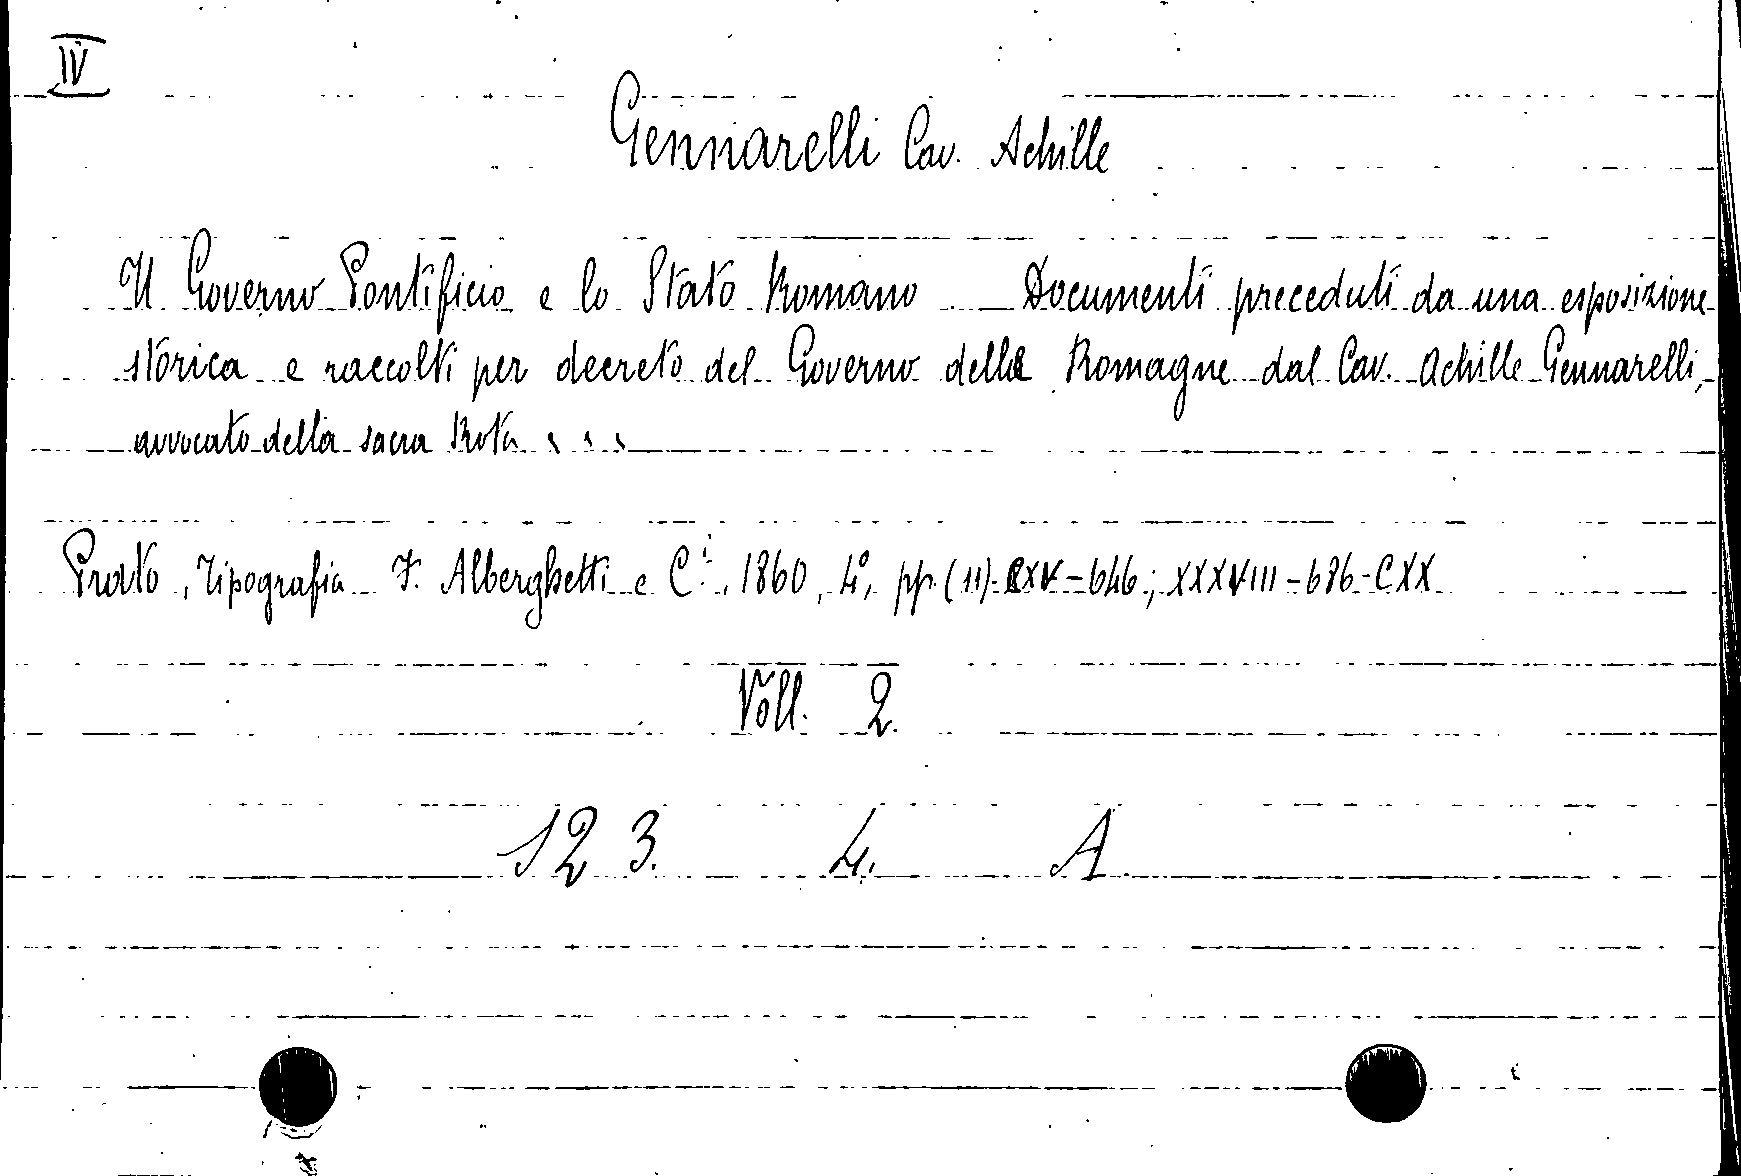 IV
Gennarelli Cav. Achille
Il Governo Pontificio e lo Stato Romano — Documenti preceduti da una esposizione
storica e raccolti per decreto del Governo delle Romagne dal Cav. Achille Gennarelli,
avvocato della sacra Rota . . .
Prato, Tipografia F. Alberghetti e C.i, 1860, 4°, pp. (11)-CXV-646; XXXVIII-686-CXX
Voll. 2.
123. 4. A.